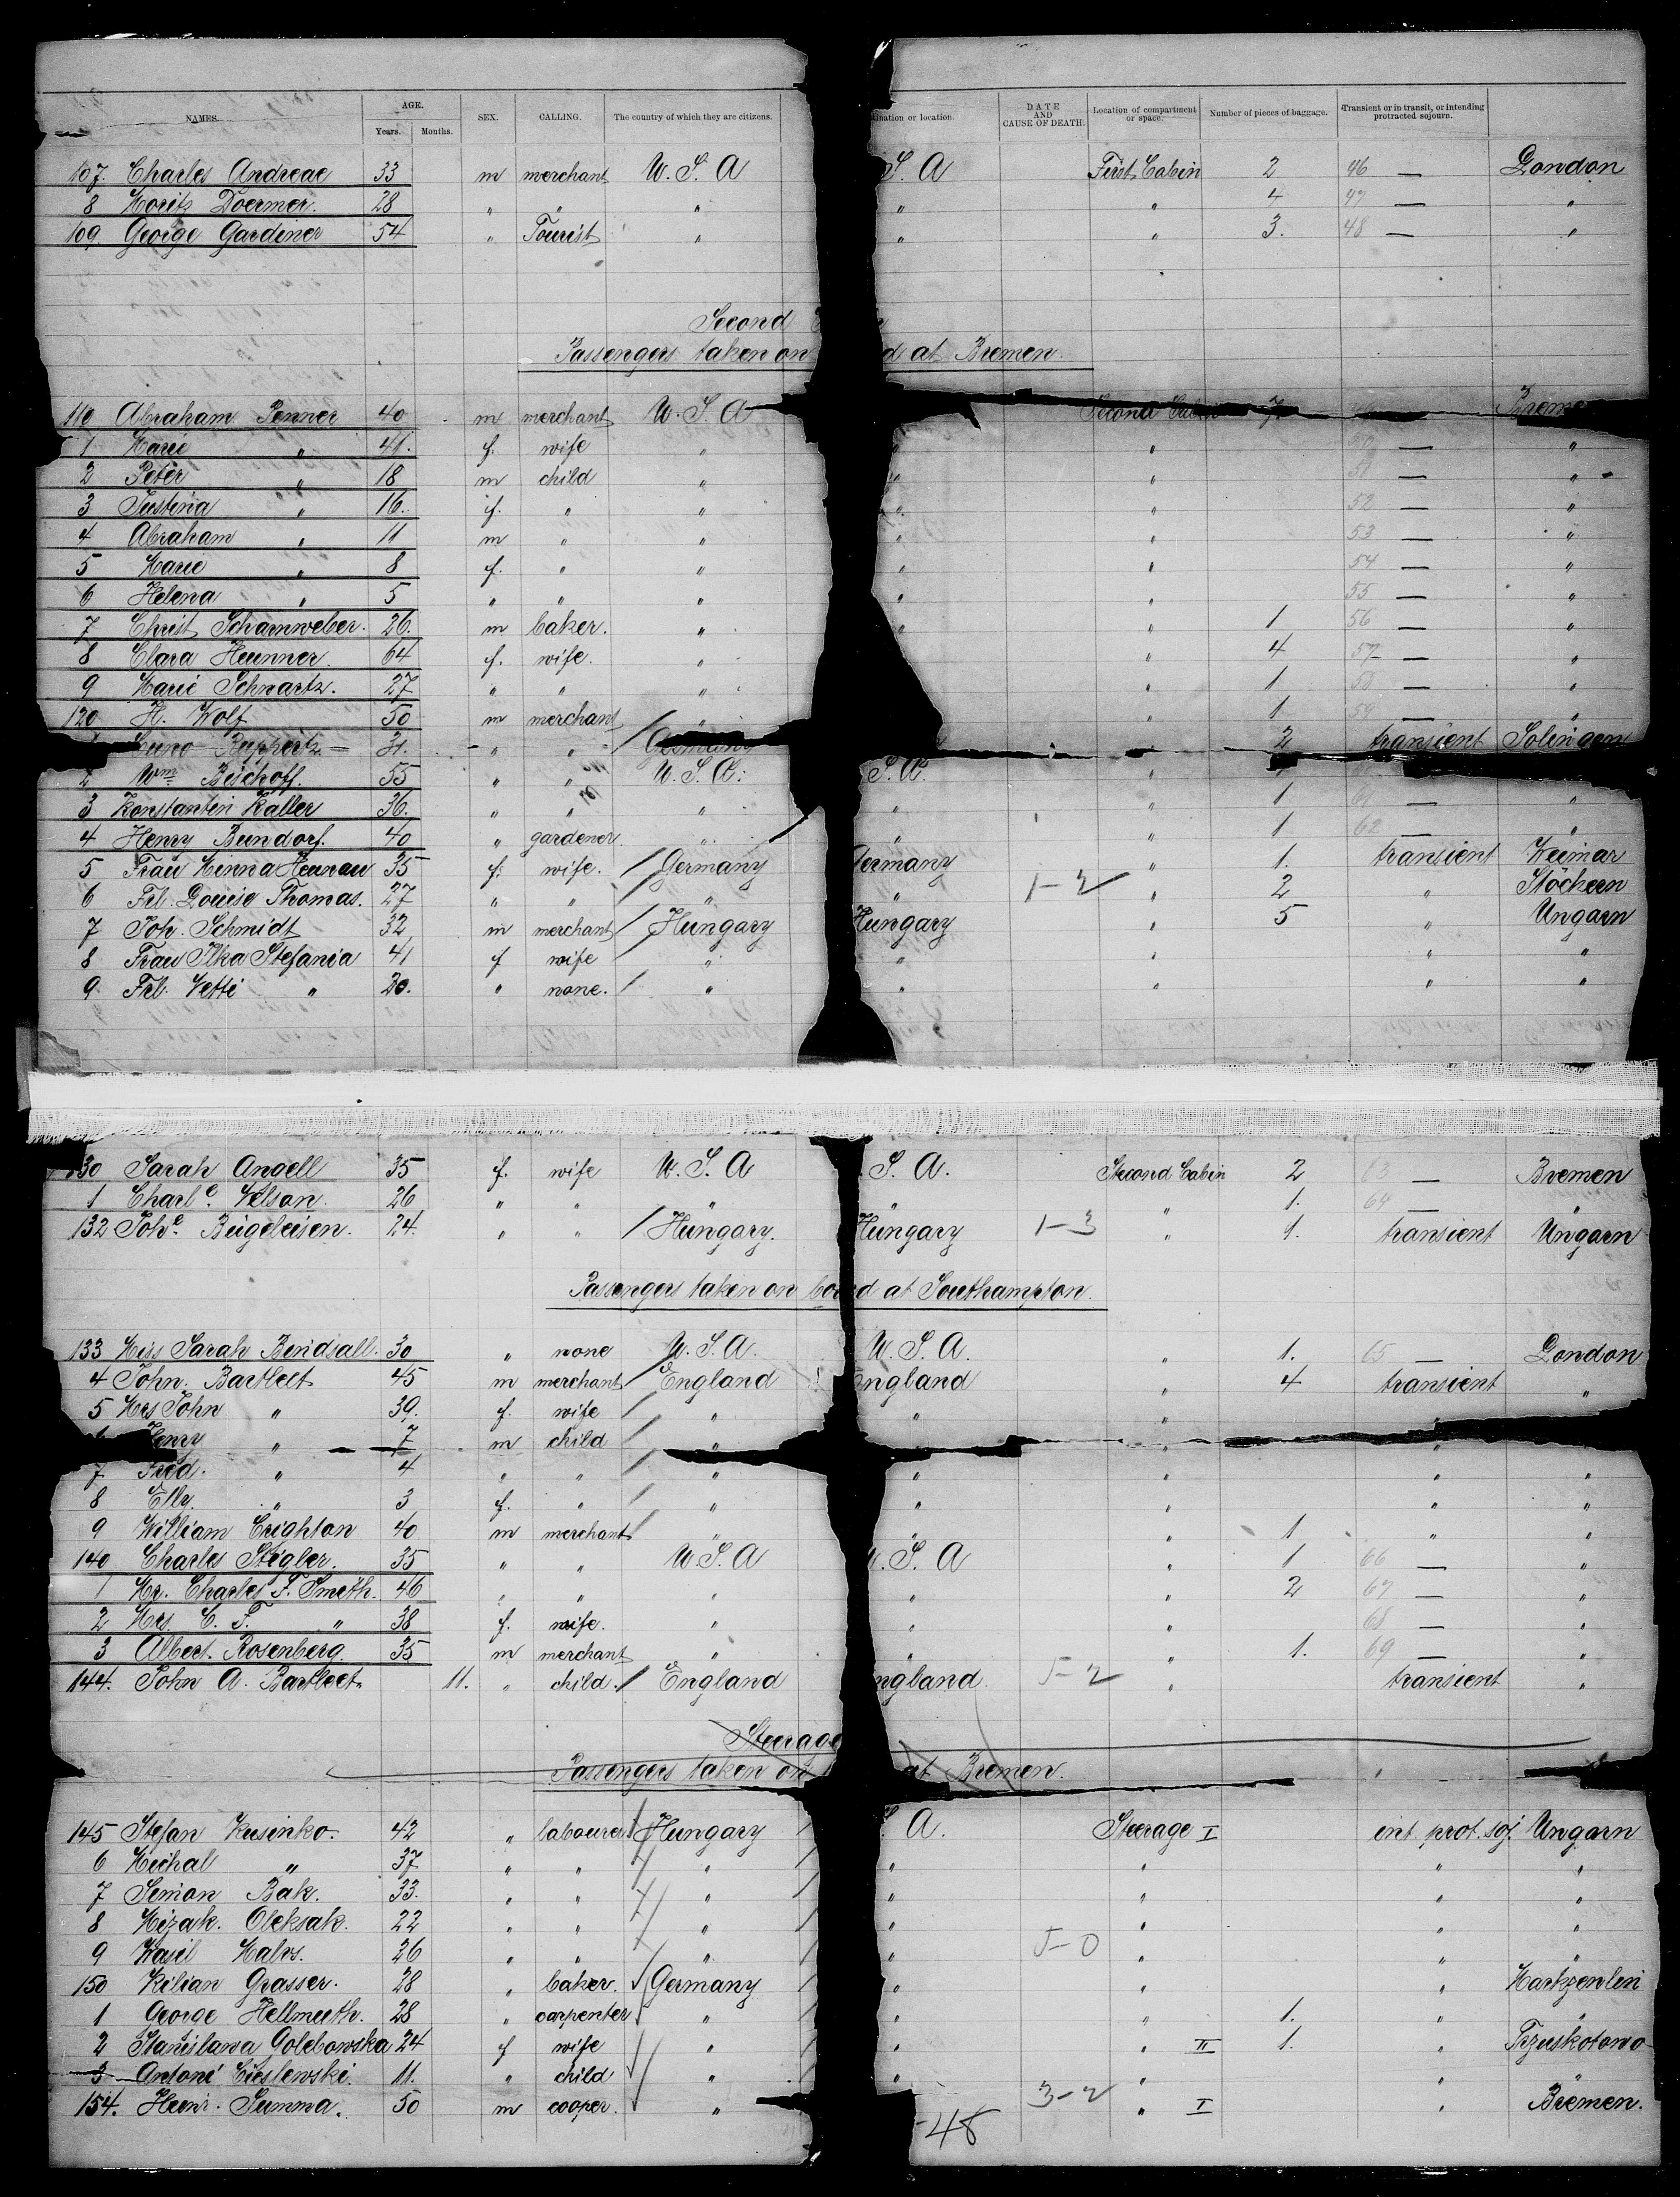 NAMES. AGE. Years. Months. SEX. CALLING. The country of which they are citizens. ination or location. DATE AND CAUSE OF DEATH. Location of compartment or space. Number of pieces of baggage. Transient or in transit, or intending protracted sojourn.
107 Charles Andreae 33 m merchant U. S. A S. A First Cabin 2 46 — London
8 Moritz Doermer. 28 " " " " " 4 47 — "
109. George Gardiner 54 " Tourist " " " 3. 48 — "
Second
Passengers taken on d at Bremen.
110 Abraham Penner 40 m merchant U. S. A Second Cabin 7 — Breme
1 Marie " 41. f. wife " " " 50 — "
2 Peter " 18 m child " " " 51 — "
3 Justina " 16. f. " " " " 52 — "
4 Abraham " 11 m " " " " 53 — "
5 Marie " 8 f. " " " " 54 — "
6 Helena " 5 " " " " " 55 — "
7 Christ Scharnweber. 26. m baker. " " " 1 56 — "
8 Clara Heunner. 64 f. wife. " " 4 57 — "
9 Marie Schwartz. 27 " " " " 1 58 — "
120 H. Wolf 50 m merchant " " 1 59 — "
Cuno Ruppertz — 31. " " / Germany 2 transient Solingen
2 Wm Bischoff. 55 " " U. S. A. S. A. "
3 Konstantin Kaller 36. " " " " " 1 61 — "
4 Henry Bundorf. 40 " gardener. " " " 1 62 — "
5 Frau Minna Heunau 35 f. wife. / Germany Germany " 1. transient Weimar
6 Frl. Louise Thomas. 27 " " / " " 1-2 " 2 " Stöckern
7 Joh. Schmidt 32 m merchant / Hungary Hungary " 5 " Ungarn
8 Frau Ilka Stefania 41 f wife / " " " " "
9. Frl. Netti " 20. " none. / " " " " "
130 Sarah Angell 35 f. wife U. S. A S. A. Second Cabin 2 63 — Bremen
1 Charl.e Nelson. 26 " " " " " 1. 64 — "
132 Joh.e Beigeleisen. 24. " " / Hungary. Hungary 1-3 " 1. transient Ungarn
Passengers taken on board at Southampton.
133 Miss Sarah Bindsall. 30 " none U. S. A. U. S. A. " 1. 65 — London
4 John. Bartleet 45 m merchant / England England " 4 transient "
5 Mrs John " 39. f. wife / " " " "
Henry " 7 m child / " " "
7 Fred. " 4 " " / " " " " "
8 Elly. " 3 f. " / " " " " "
9 William Crighton 40 m merchant / " " " 1 " "
140 Charles Stigler. 35 " " U. S. A U. S. A " 1 66 — "
1 Mr. Charles F. Smeth. 46 " " " " " 2 67 — "
2 Mrs. C. F. " 38 f. wife. " " " 68 — "
3 Albert. Rosenberg. 35 m merchant " " " 1. 69 — "
144. John A. Bartleet 11. " child. / England ngland. 5-2 " transient "
Steerage
Passengers taken on at Bremen.
145 Stefan Kusinko. 42 " labourer / Hungary A. Steerage I int. prot. soj. Ungarn
6 Michal " 37 " " / " " " " "
7 Simon Bak. 33. " " / " " " " "
8 Mizak. Oleksak. 22 " " / " " " " "
9 Wasil Halvs. 26 " " / " " 5-0 " " "
150 Kilian Grasser. 28 " baker. / Germany " " "
1 George Hellmuth. 28 " carpenter " " " 1. " "
2 Stanislawa Golebowska 24 f wife / " " " II 1. "
3 Antoni Cieslewski. 11. " child / " " " " "
154. Heinr. Summa. 50 m cooper. / " 3-2 " I " Bremen.
-48